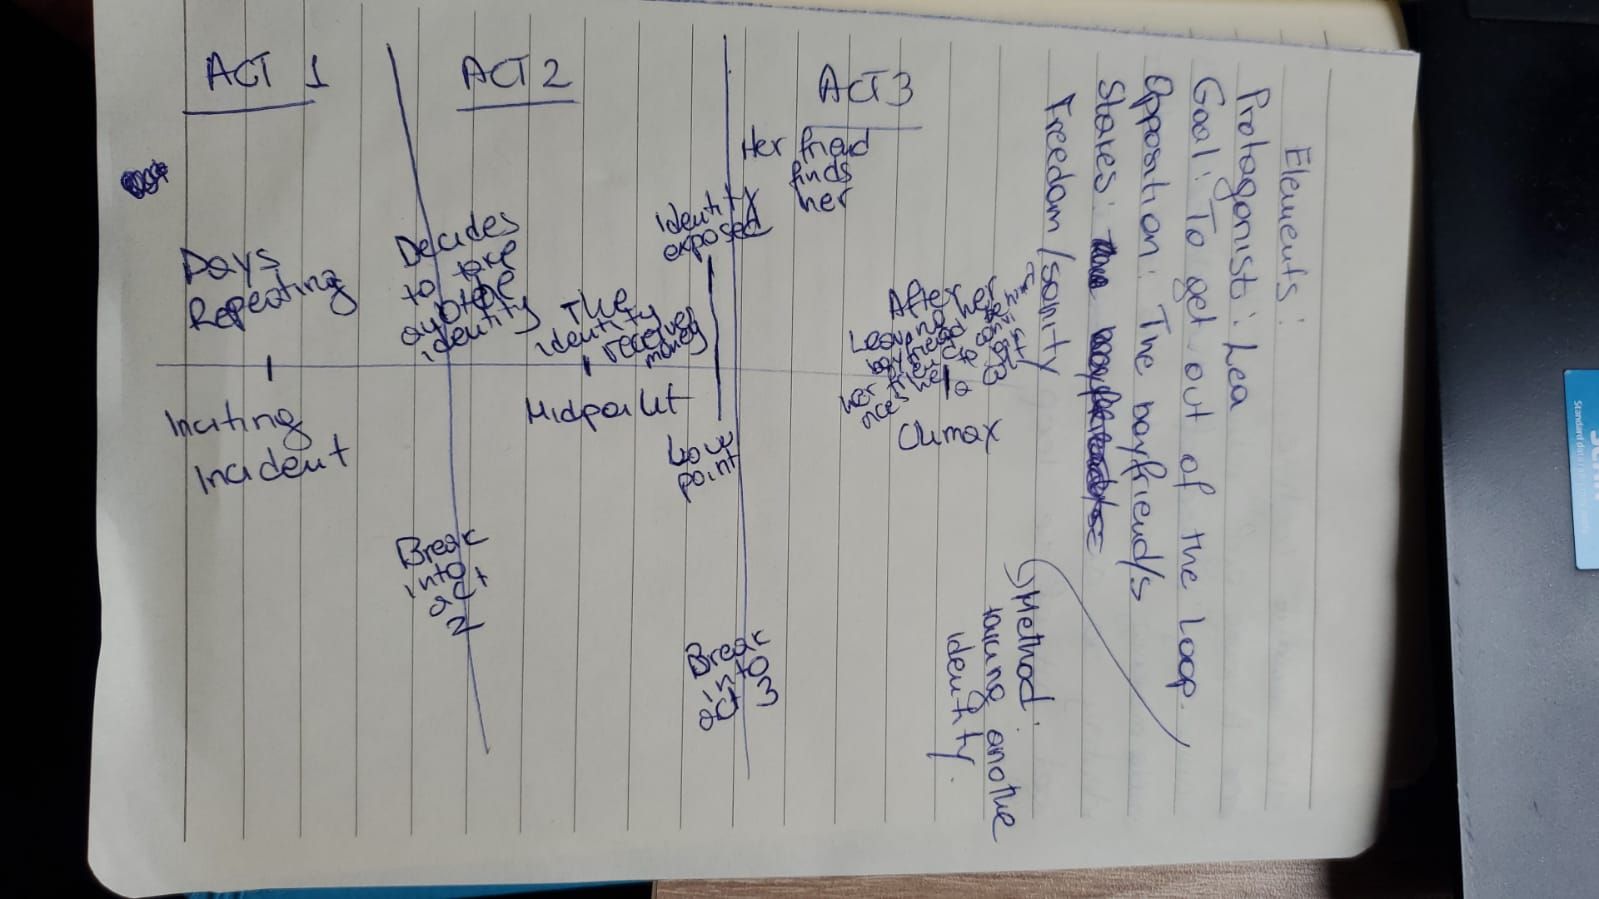 Elements:
Protagonist: Lea
Goal: To get out of the Loop.
Opposition: The boyfriend/s
Stakes:
Freedom/sanity
Method:
taking anothe
identity.
ACT 1
ACT 2
ACT 3
Days
Repeating
Inciting
Incident
Decides
to take
anothe
identity
Break
into
act
2
The
identity
receives
money
Midpoint
identity
exposed
Low
point
Break
into
act 3
Her friend
finds
her
After
Leaving her
boyfriend
her friend
her to
Climax
Standard